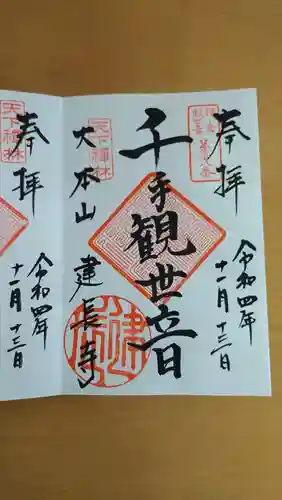 奉拝
令和四年
十一月十三日
千手観世音
大本山 建長寺
天下禅林
奉拝
令和四年
十一月十三日
天下禅林